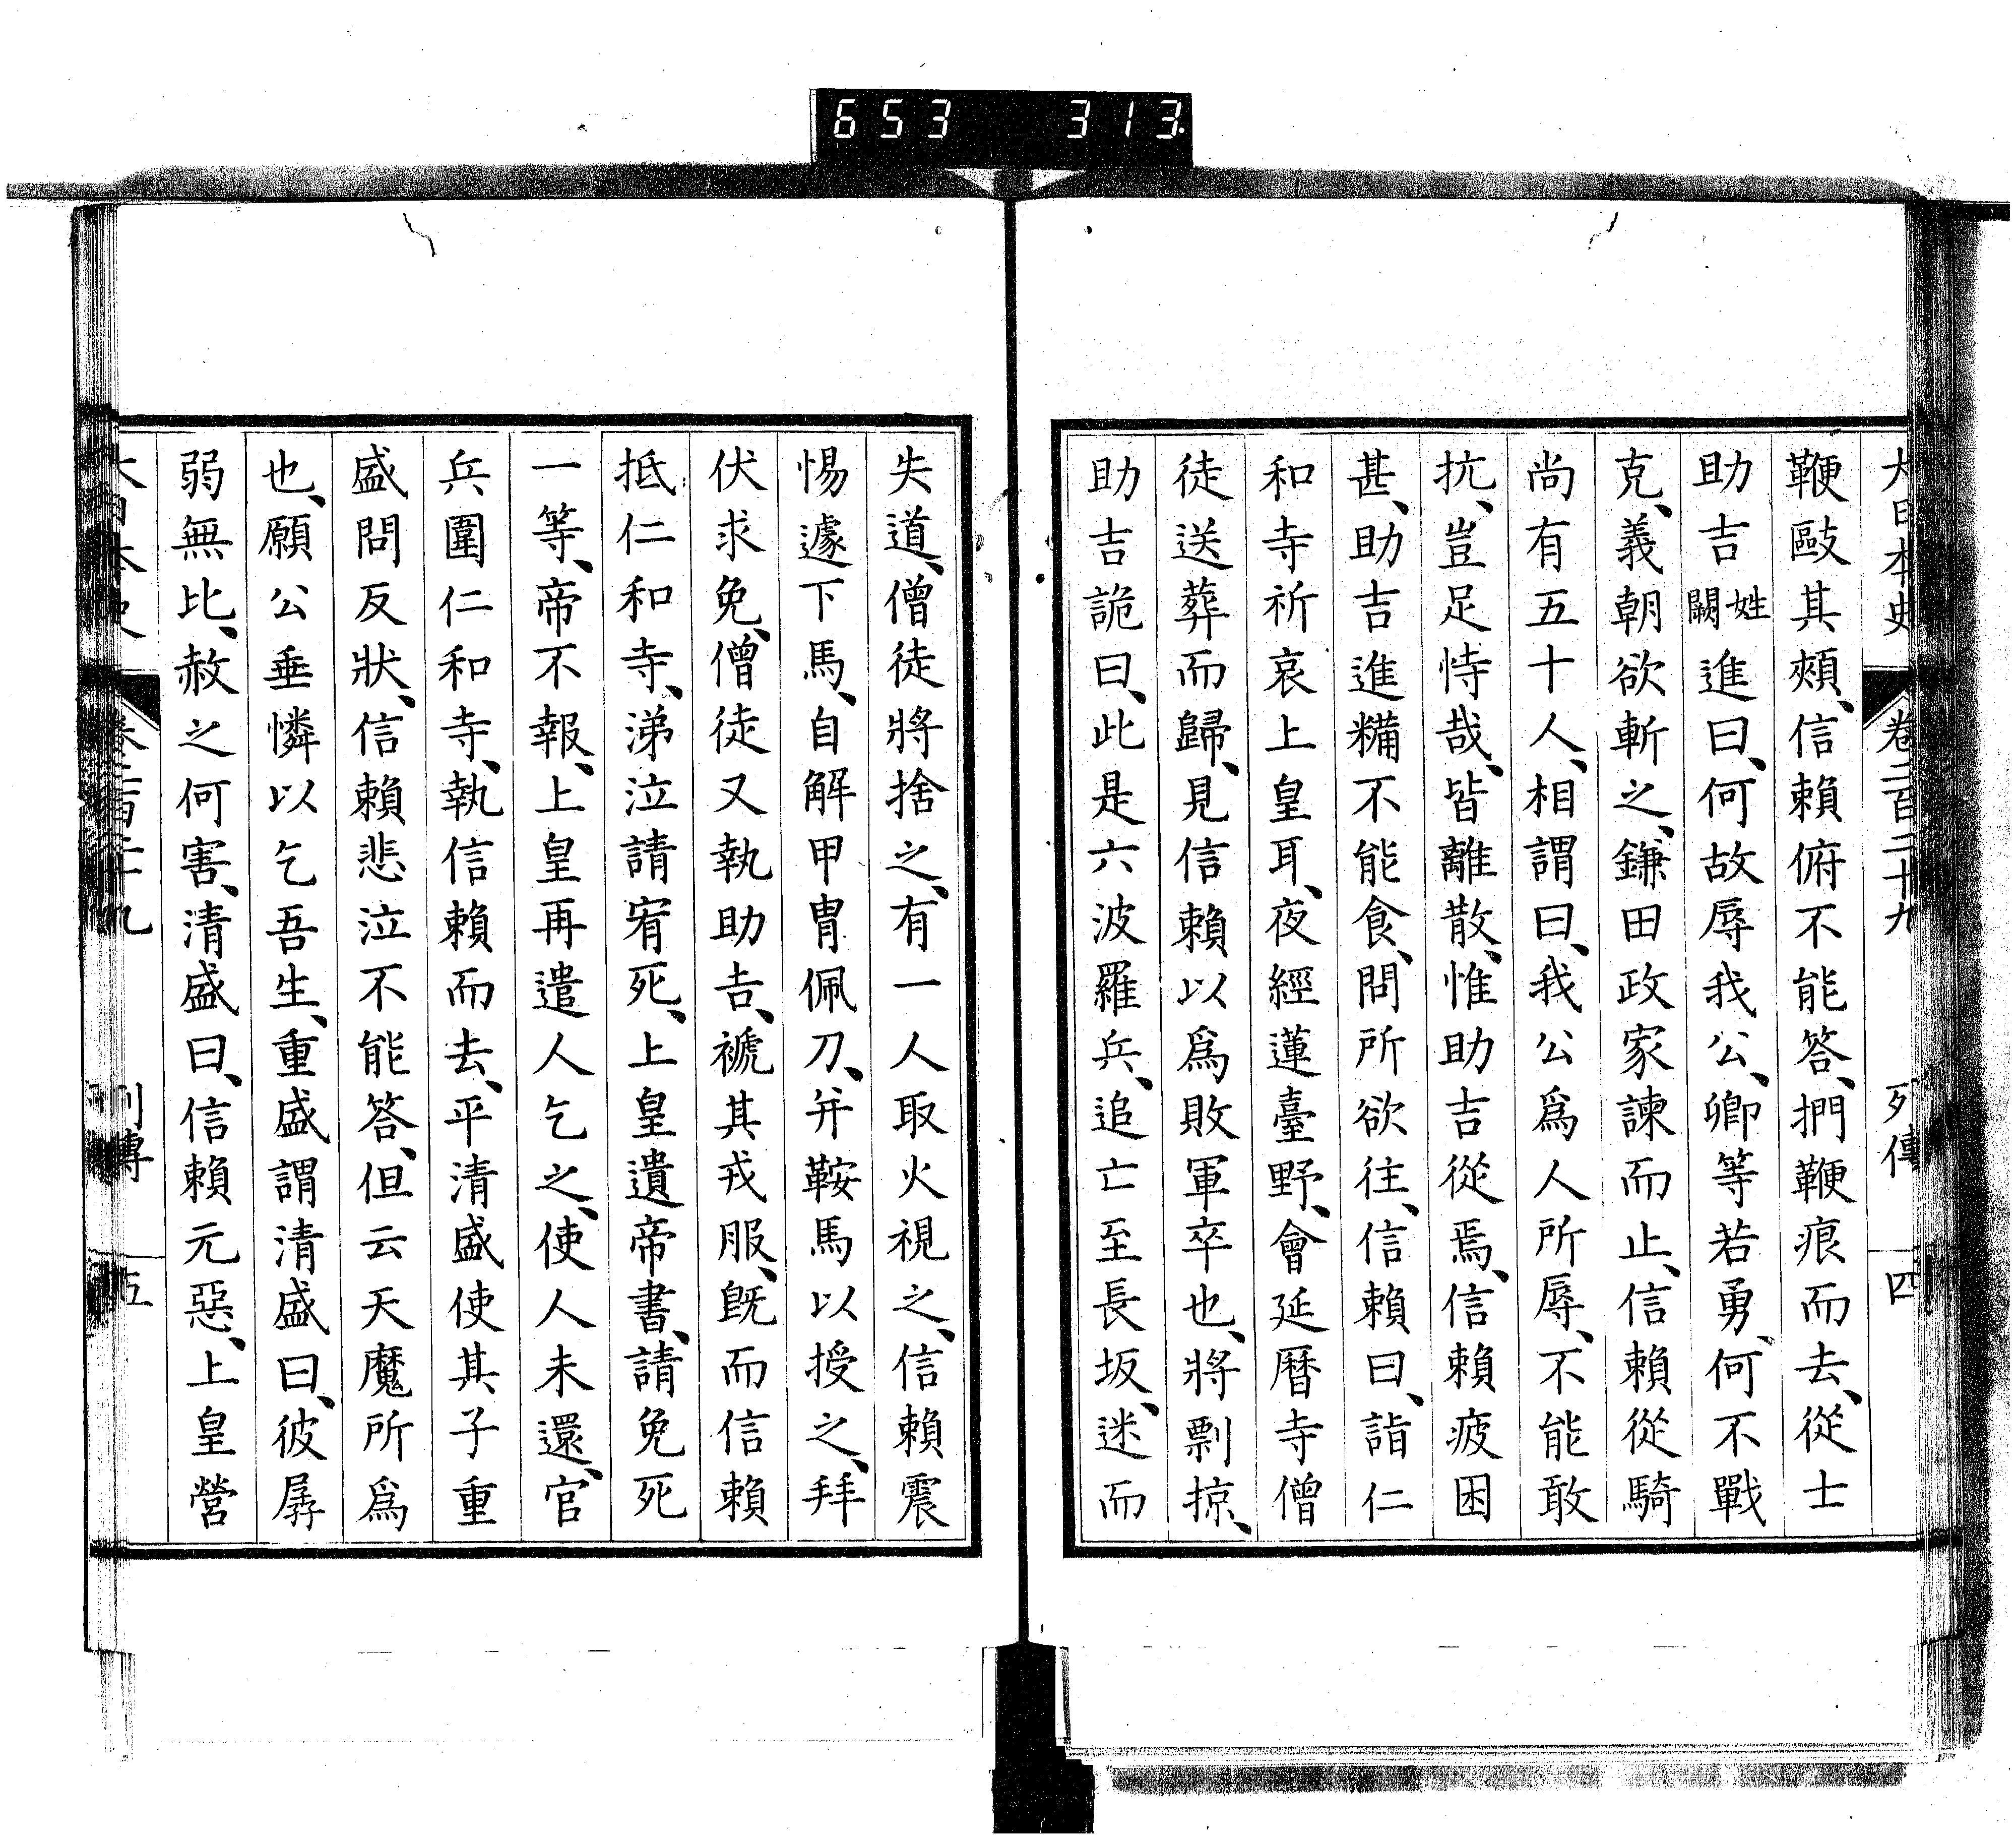 653 313.
大日本史 卷二百二十九 列傳 四
鞭毆其頰、信賴俯不能答、捫鞭痕而去、從士
助吉姓闕進曰、何故辱我公、卿等若勇、何不戰
克、義朝欲斬之、鎌田政家諫而止、信賴從騎
尚有五十人、相謂曰、我公爲人所辱、不能敢
抗、豈足恃哉、皆離散、惟助吉從焉、信賴疲困
甚、助吉進糒不能食、問所欲往、信賴曰、詣仁
和寺祈哀上皇耳、夜經蓮臺野、會延曆寺僧
徒送葬而歸、見信賴以爲敗軍卒也、將剽掠、
助吉詭曰、此是六波羅兵、追亡至長坂、迷而
失道、僧徒將捨之、有一人取火視之、信賴震
惕遽下馬、自解甲冑佩刀、幷鞍馬以授之、拜
伏求免、僧徒又執助吉、褫其戎服、旣而信賴
抵仁和寺、涕泣請宥死、上皇遺帝書、請免死
一等、帝不報、上皇再遣人乞之、使人未還、官
兵圍仁和寺、執信賴而去、平清盛使其子重
盛問反狀、信賴悲泣不能答、但云天魔所爲
也、願公垂憐以乞吾生、重盛謂清盛曰、彼孱
弱無比、赦之何害、清盛曰、信賴元惡、上皇營
大日本史 卷二百二十九 列傳 五